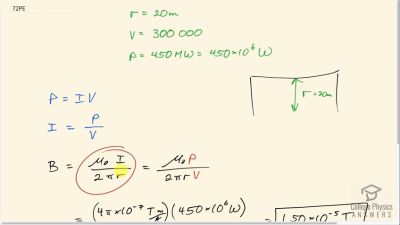 72PE
r = 20m
V = 300 000
P = 450 MW = 450×10⁶ W
r=20m
P = IV
I = P/V
B = μ₀ I / 2πr = μ₀ P / 2πr V
= (4π×10⁻⁷ T m/A)(450×10⁶ W) = 1.50×10⁻⁵ T
College Physics
ANSWERS